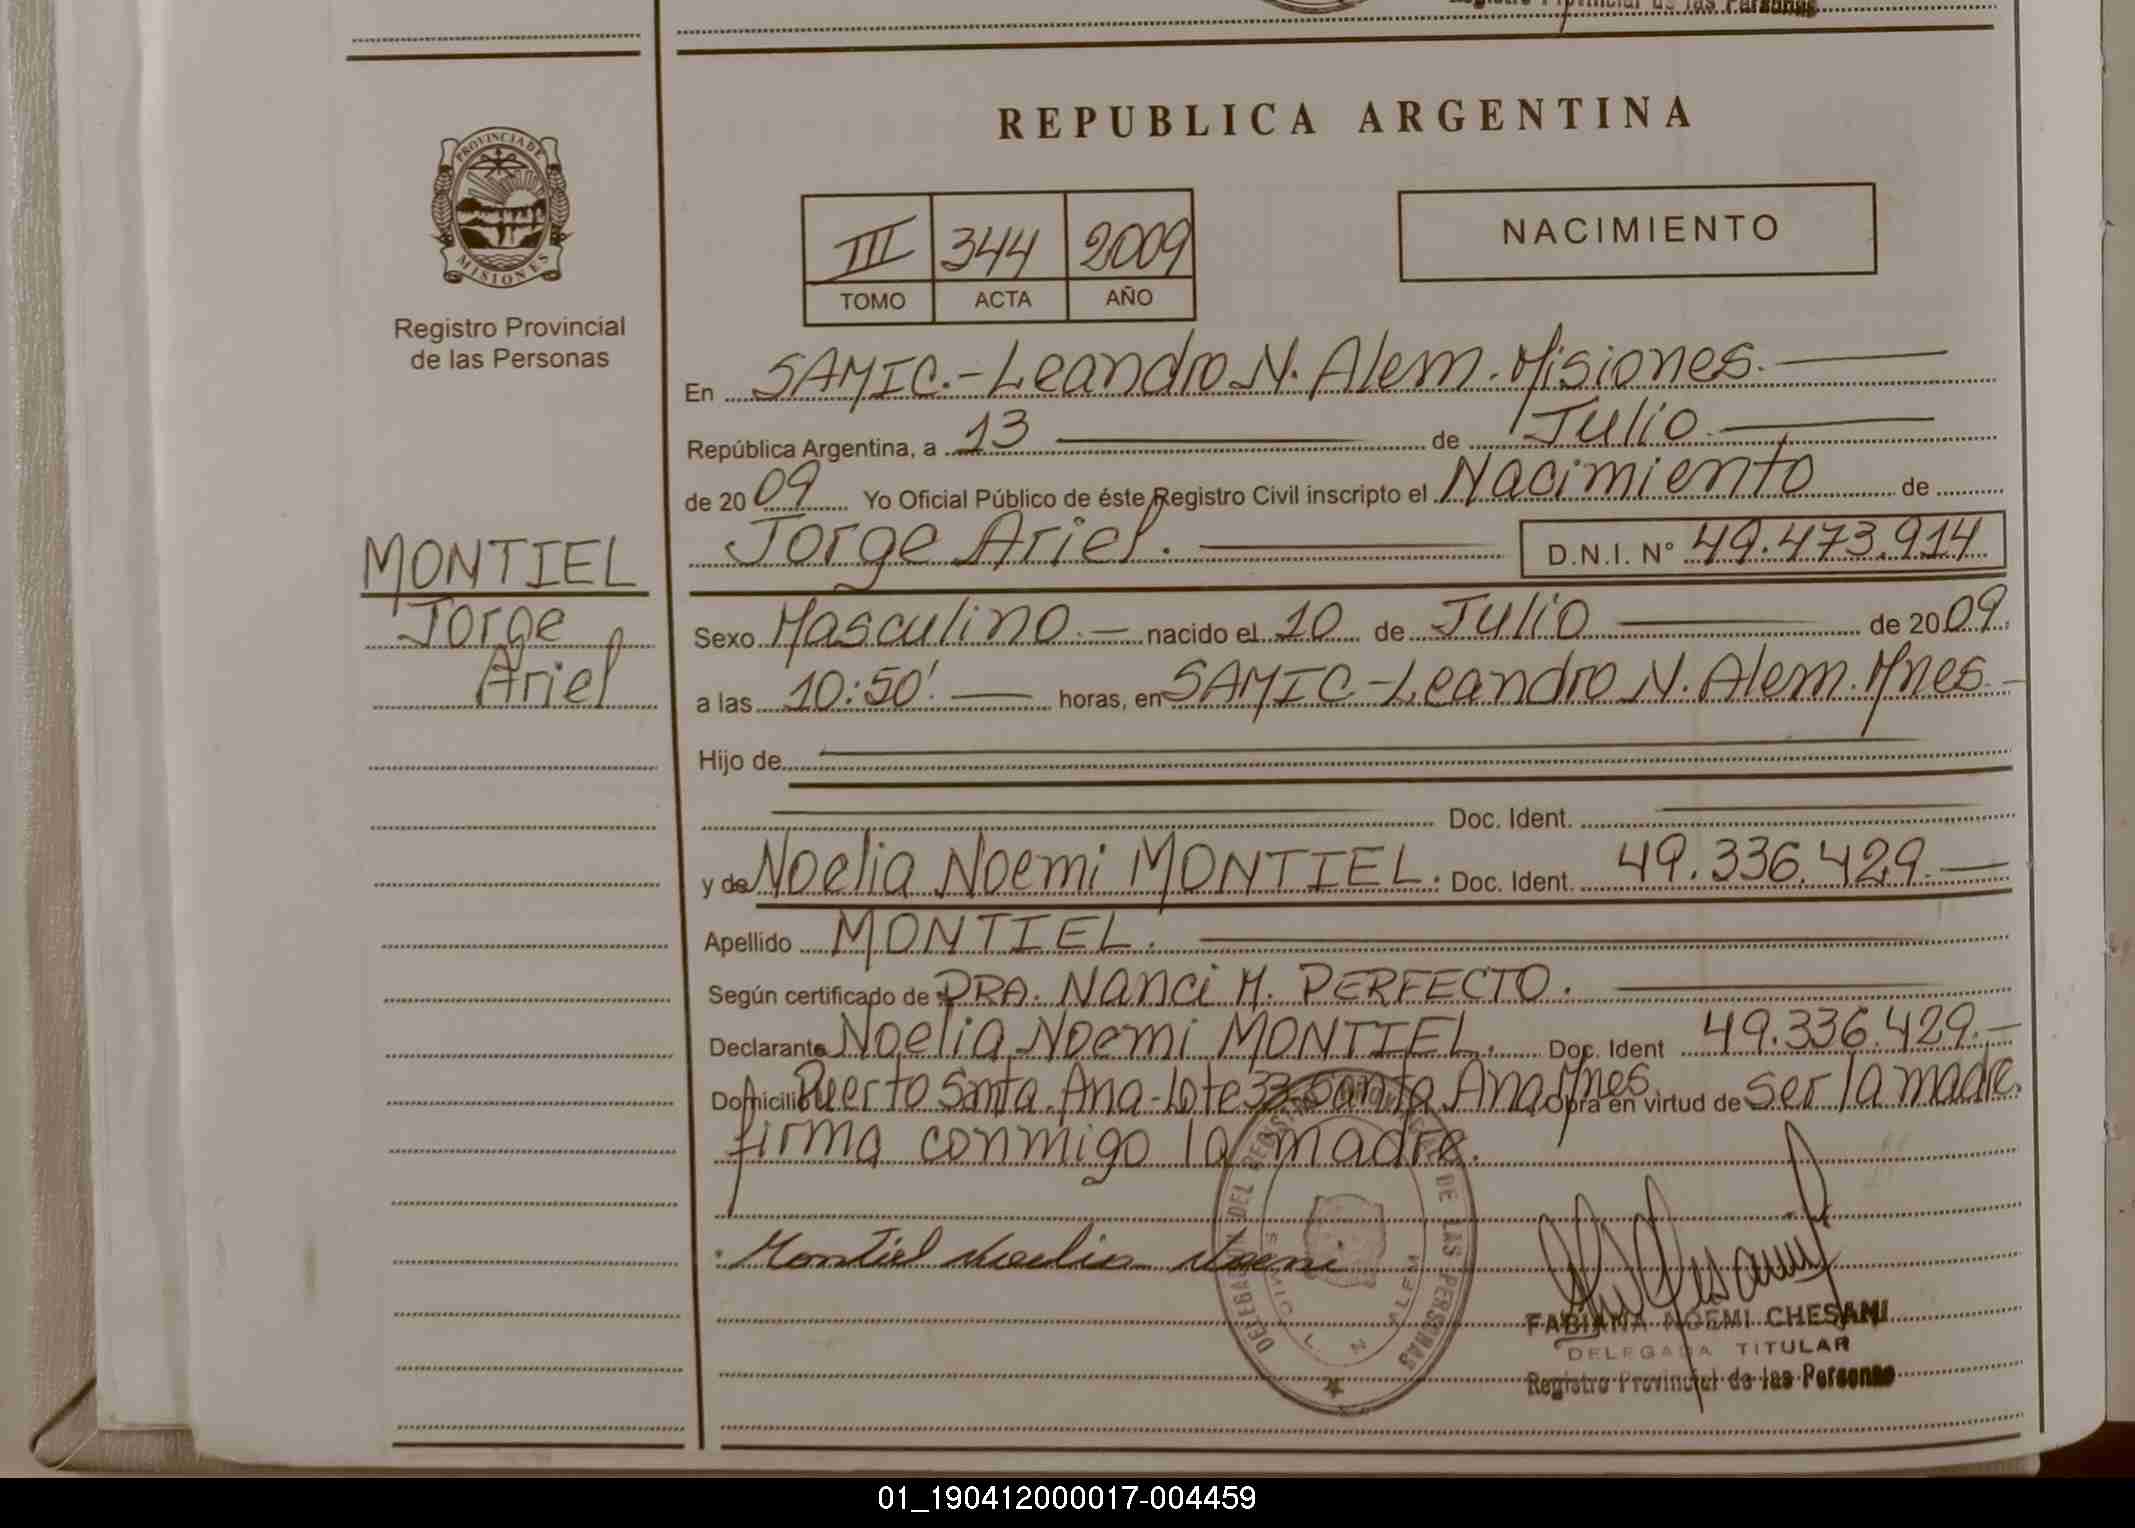 Registro Provincial de las Personas
REPUBLICA ARGENTINA
PROVINCIA DE
MISIONES
Registro Provincial
de las Personas
III 344 2009
TOMO ACTA AÑO
NACIMIENTO
En SAMIC.-Leandro N. Alem. Misiones.
República Argentina, a 13 de Julio.
de 2009 Yo Oficial Público de éste Registro Civil inscripto el Nacimiento de
Jorge Ariel. D.N.I. N° 49.473.914
MONTIEL
Jorge
Ariel
Sexo Masculino.- nacido el 10 de Julio de 2009.
a las 10:50'. horas, en SAMIC-Leandro N. Alem. Mnes.-
Hijo de
Doc. Ident.
y de Noelia Noemi MONTIEL. Doc. Ident. 49.336.429.-
Apellido MONTIEL.
Según certificado de DRA. Nanci M. PERFECTO.
Declarante Noelia Noemi MONTIEL. Doc. Ident 49.336.429.-
Domicilio Puerto Santa Ana-Lote 33-Santa Ana Mnes. Opra en virtud de ser la madre.
firma conmigo la madre.
Montiel Noelia Noemi
DELEGACION DEL REGISTRO PROVINCIAL DE LAS PERSONAS
SAMIC L. N. ALEM
FABIANA NOEMI CHESANI
DELEGADA TITULAR
Registro Provincial de las Personas
01_190412000017-004459